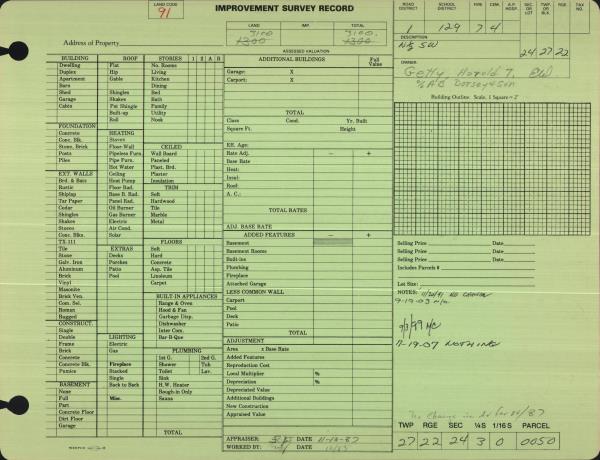 LAND CODE
91
IMPROVEMENT SURVEY RECORD
LAND IMP. TOTAL
3100 3100
1300 1300
ASSESSED VALUATION
Address of Property
ROAD DISTRICT SCHOOL DISTRICT FIRE CEM. A.P. HOSP. SEC. OR LOT TWP. OR BLK. RGE. TAX NO.
1 129 7 4
DESCRIPTION
N½ SW 24 27 22
OWNER
Getty, Harold T.
% A B Dorsey & Son
Building Outline Scale, 1 Square =
BUILDING ROOF STORIES 1 2 A B
Dwelling Flat No. Rooms
Duplex Hip Living
Apartment Gable Kitchen
Barn Dining
Shed Shingles Bed
Garage Shakes Bath
Cabin Pat Shingle Family
Built-up Utility
Roll Nook
FOUNDATION
Concrete HEATING
Conc. Blk. Stoves CEILED
Stone, Brick Floor-Wall Wall Board
Posts Pipeless Furn. Paneled
Piles Pipe Furn. Plast. Brd.
Hot Water Plaster
EXT. WALLS Ceiling Insulation
Brd. & Bats Heat Pump TRIM
Rustic Floor Rad. Soft
Shiplap Base B. Rad. Hardwood
Tar Paper Panel Rad. Tile
Cedar Oil Burner Marble
Shingles Gas Burner Metal
Shakes Electric
Stereo Air Cond.
Conc. Blks. Solar FLOORS
TX 111 Soft
Tile EXTRAS Hard
Stone Decks Concrete
Galv. Iron Porches Asp. Tile
Aluminum Patio Linoleum
Brick Pool Carpet
Vinyl
Masonite
Brick Ven. BUILT-IN APPLIANCES
Com. Sel. Range & Oven
Roman Hood & Fan
Rugged Garbage Disp.
CONSTRUCT. Dishwasher
Single Inter Com.
Double LIGHTING Bar-B-Que
Frame Electric
Brick Gas PLUMBING
Concrete 1st G. 2nd G.
Concrete Blk. Fireplace Shower Tub
Pumice Stacked Toilet Lav.
Single Sink
BASEMENT Back to Back H.W. Heater
None Rough in Basement
Full Misc. Sauna
Part
Concrete Floor
Dirt Floor
Garage TOTAL
ADDITIONAL BUILDINGS Full Value
Garage: X
Carport: X
TOTAL
Class Cond. Yr. Built
Square Ft. Height
Eff. Age:
Rate Adj. − +
Base Rate
Heat:
Insul:
Roof:
A. C.:
TOTAL RATES
ADJ. BASE RATE
ADDED FEATURES − +
Basement
Basement Rooms
Built-ins
Plumbing
Fireplace
Attached Garage
LESS COMMON WALL
Carport
Pool
Deck
Patio
TOTAL
ADJUSTMENT
Area x Base Rate
Added Features
Reproduction Cost
Local Multiplier %
Depreciation %
Depreciated Value
Additional Buildings
New Construction
Appraised Value
APPRAISER: DATE 11-12-87
WORKED BY: DATE
Selling Price Date
Selling Price Date
Includes Parcels #
Lot Size:
NOTES: 11/20/91 NO CHANGE
9-19-03 N/C
9/3/99 N/C
11-19-07 NOTHING
No Change in AV for 87
TWP RGE SEC ¼S 1/16 S PARCEL
27 22 24 3 0 0050